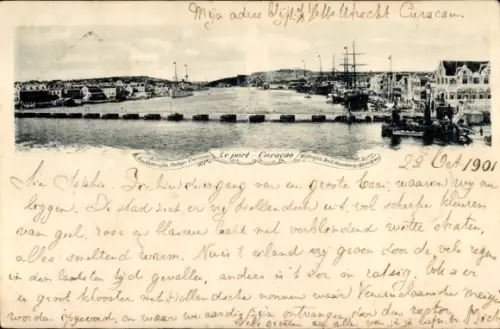 Mijn adres blijft: p/a Utrecht Curaçao.
Le port - Curaçao
29 Oct 1901
Zie hier de ingang van een groote baai, waarin wij nu
leggen. De stad ziet er vrij Hollandsch uit, vol scherpe kleuren
van geel, rose en blauwe lucht met verblindend witte straten,
alles smeltend warm. Nu is 't eiland vrij groen door de vele regens
in den laatsten tijd gevallen, anders is 't dor en rotsig. Ook is er
een groot klooster met Hollandsche nonnen waar Venezuelaansche meisjes
worden opgevoed, en waar we aardig zijn ontvangen door den rector.
Vele groeten aan allen van je